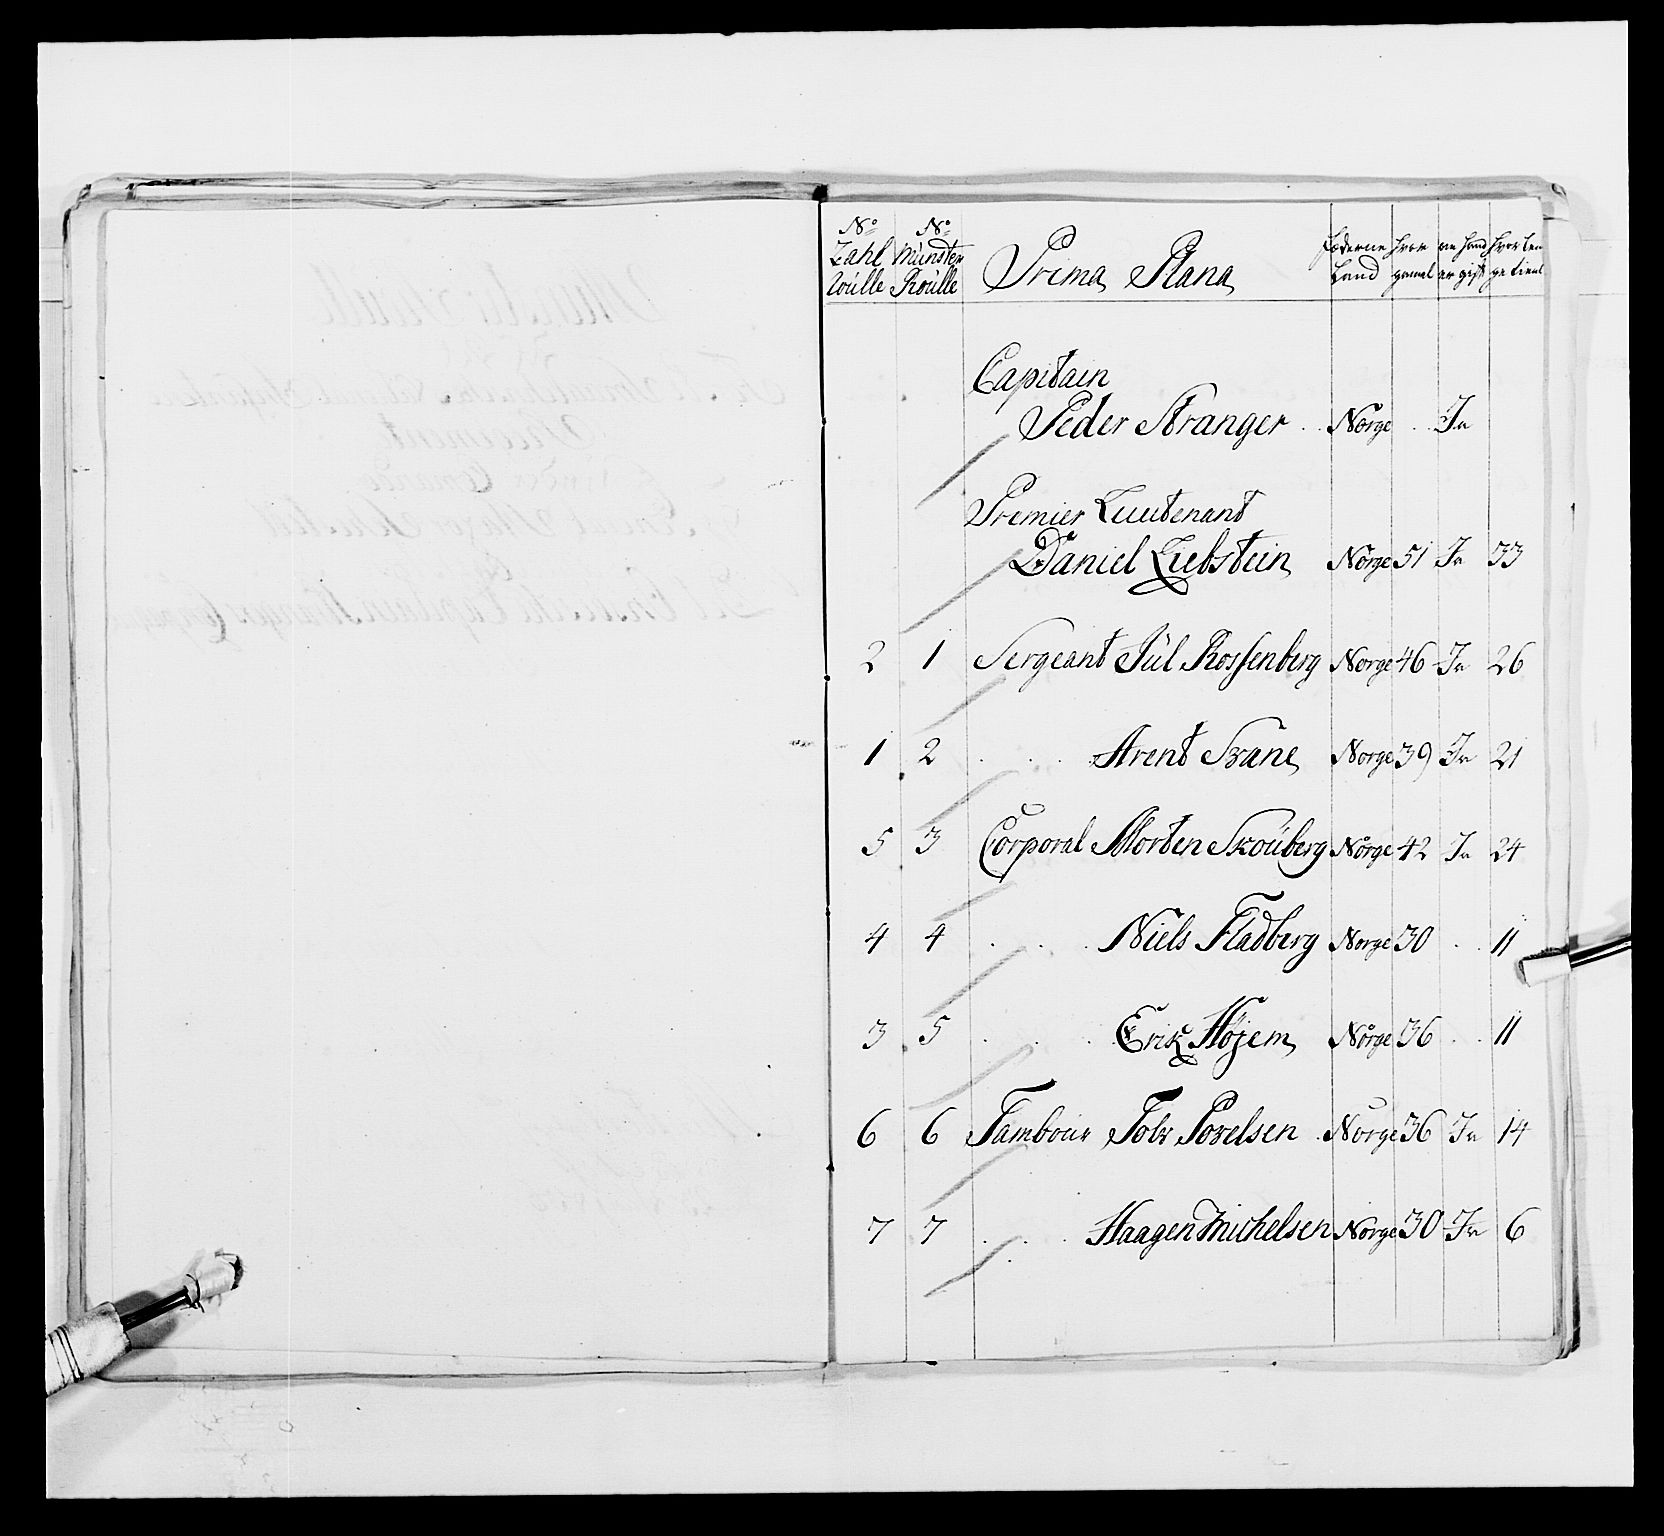 No No
Zahl Münster Prima Plana Fæderne hvor om hand hvor len
Roulle Roulle Land gamel er gift ge tient
Capitain
Peder Stranger Norge Ja
Premier Lieutenant
Daniel Liebstein Norge 51 Ja 33
2 1 Sergeant Jül Rossenberg Norge 46 Ja 26
1 2 Arent Svane Norge 39 Ja 21
5 3 Corporal Morten Skouberg Norge 42 Ja 24
4 4 Niels Fladberg Norge 30 11
3 5 Erik Høyem Norge 36 11
6 6 Tambour Povelsen Norge 36 Ja 14
7 7 Haagen Michelsen Norge 30 Ja 6